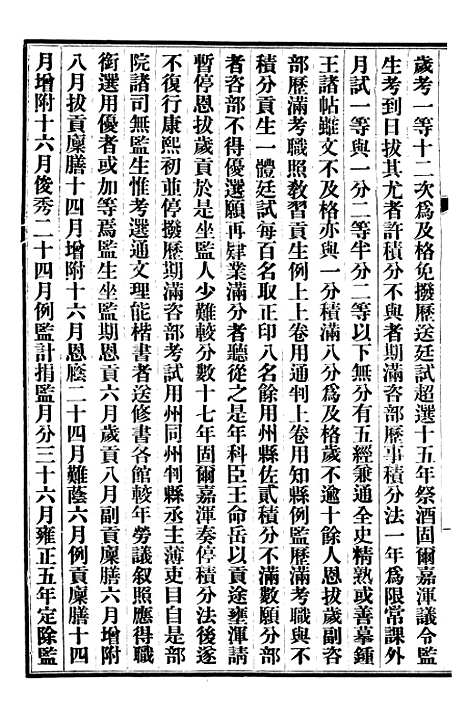 歲考一等十二次爲及格免撥歷送廷試超選十五年祭酒固爾嘉渾議令監
生考到日拔其尤者許積分不與者期滿咨部歷事積分法一年爲限常課外
月試一等與一分二等半分二等以下無分有五經兼通全史精熟或善摹鍾
王諸帖雖文不及格亦與一分積滿八分爲及格歲不逾十餘人恩拔歲副咨
部歷滿考職照教習貢生例上上卷用通判上卷用知縣例監歷滿考職與不
積分貢生一體廷試每百名取正印八名餘用州縣佐貳積分不滿數願分部
者咨部不得優選願再肄業滿分者聽從之是年科臣王命岳以貢途壅渾請
暫停恩拔歲貢於是坐監人少難較分數十七年固爾嘉渾奏停積分法後遂
不復行康熙初並停撥歷期滿咨部考試用州同州判縣丞主薄吏目自是部
院諸司無監生惟考選通文理能楷書者送修書各館較年勞議敘照應得職
銜選用優者或加等焉監生坐監期恩貢六月歲貢八月副貢廩膳六月增附
八月拔貢廩膳十四月增附十六月恩廕二十四月難蔭六月例貢廩膳十四
月增附十六月俊秀二十四月例監計捐監月分三十六月雍正五年定除監